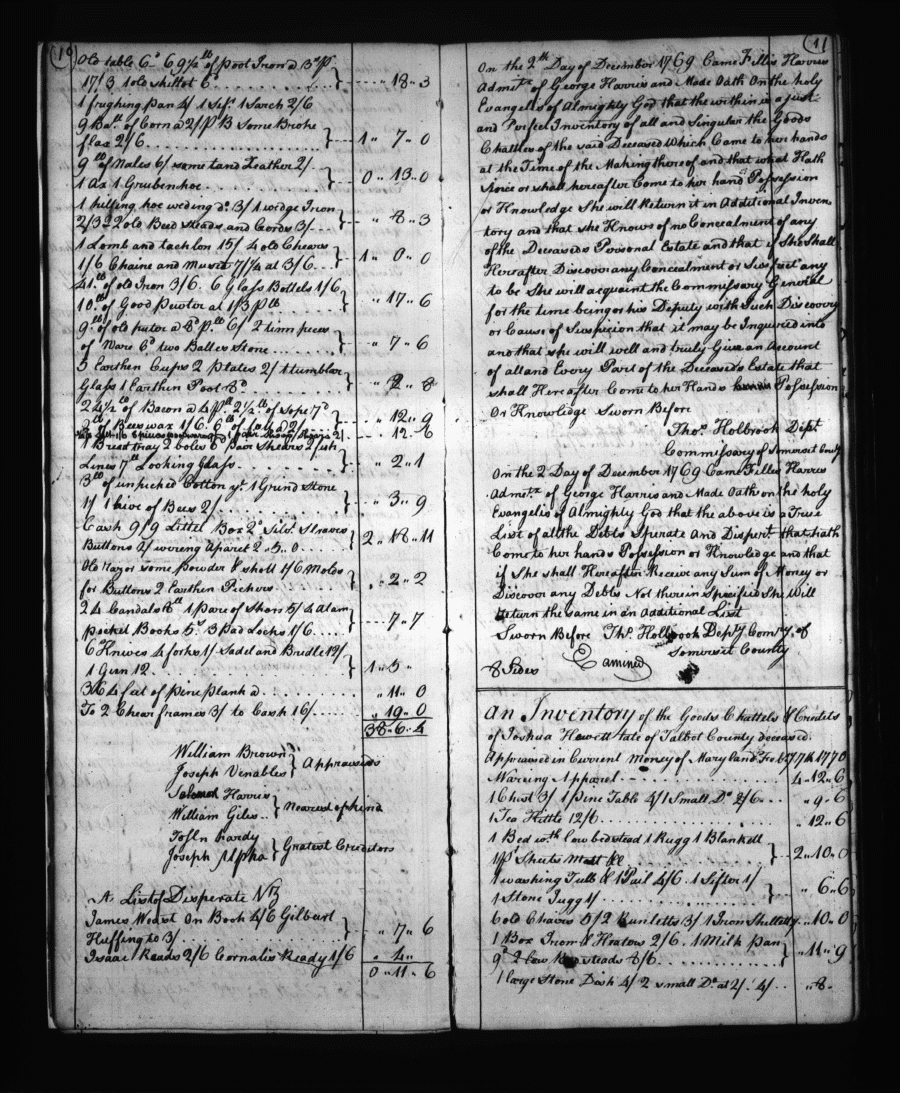 10
Old table 6d 69½ lb of pool Iron a 3d p
17/3 1 old skillet 6d ,, 18 ,, 3
1 frughing pan 4/ 1 Sifr 1 Sarch 2/6
9 Bu.ll of Corn a 2/ P B Some Broke
flax 2/6 1 ,, 7 ,, 0
9 lb of Nales 6/ some tand Leather 2/
1 Ax 1 Grubenhoe 0 ,, 13 ,, 0
1 hilling hoe weding do 3/ 1 wedge Iron
2/3 2 old Bed steads and Cords 3/ ,, 8 ,, 3
1 Lomb and tacklon 15/ 4 old Cheares
1/6 Chaine and 7/ at 3/6 1 ,, 0 ,, 0
41 lb of old Iron 3/6. 6 Glass Bottels 1/6
10 lb of Good Pewtor at 1/3 P lb ,, 17 ,, 6
9 lb of old putor a 8d P lb 6/ 2 tinn peces
of Ware 6d two Batter Stone ,, 7 ,, 6
5 Earthen Cups 2 plates 2/ 1 tumblor
Glass 1 Earthen Poot 8d ,, 2 ,, 8
24½ lb of Bacon a 4d P lb 2½ lb of Sope 7d ,, 12 ,, 9
lb of Beeswax 1/6. 6 lb of 2/ ,, 12 ,, 6
1 Bread tray 2 boles 6d pair Shears 2 fish
Lines 7d Looking Glass ,, 2 ,, 1
3 lb of unpicked Cotton yt 1 Grind Stone
1/ 1 hive of Bees 2/ ,, 3 ,, 9
Cash 9/9 Little Box 2d Silvr Sleaves
Buttons 2/ wereing Aparel 2 .. 5 .. 0 2 ,, 18 ,, 11
Old Razor some powder & shott 1/6 Molds
for Buttons 2 Earthen Pichers ,, 2 ,, 2
24 Candals 8d 1 Pare of Shors 5/ 4 alam
pocket Books 5d 3 Pad Locks 1/6 ,, 7 ,, 7
6 Knives 4 forks 1/ Sadel and Bridle 12/
1 Gun 12 1 ,, 5 ,,
364 feet of pine plank a ,, 11 ,, 0
To 2 Chear frames 3/ to Cash 16/ ,, 19 ,, 0
38 ,, 6 ,, 4
William Brown
Joseph Venables } Appraisers
Harris
William Giles } Nearest of kind
Hardy
Joseph Alpha } Gratest Creditors
A List of Desperate
James West On Book 4/6 Gilburt
Huffington 3/ ,, 7 ,, 6
Isaac Reads 2/6 Cornalis Ready 1/6 ,, 4 ,,
0 ,, 11 ,, 6
11
On the 2th Day of December 1769 Came Fillis Harris
Admrx of George Harris and Made Oath On the holy
Evangells of Almighty God that the within is a just
and Perfect Inventory of all and Singular the Goods
Chattles of the said Deceased Which Came to her hands
at the Time of the Making thereof and that what Hath
Since or shall hereafter Come to her hand Possession
or Knowledge She will Return it in Additional Inven
tory and that she Knows of no Concealment of any
of the Deceaseds Personal Estate and that if She Shall
Hereafter Discover any Concealment or Suspect any
to be She will acquaint the Commissary General
for the time being or his Deputy with Such Discovery
or Cause of Suspicion that it may be Inquired into
and that she will well and truly Give an Account
of all and Every Part of the Deceaseds Estate that
shall Hereafter Come to her Hands Possession
Or Knowledge Sworn Before
Thos. Holbrook Dept
Commissary of Somerset County
On the 2 Day of December 1769 Came Filles Harris
Admrx of George Harris and Made Oath on the holy
Evangelis of Almighty God that the above is a True
List of all the Debts Sperate And Disperet that hath
Come to her hands Possession or Knowledge and that
if She shall Hereafter Receive any Sum of Money or
Discover any Debts Not therein Specified She Will
Return the same in an Additional List
Sworn Before Tho. Holbrook Depty Comry. of
Somerset County
8 Sides Examined
An Inventory of the Goods Chattels & Credets
of Joshua Hewett late of Talbot County deceased.
Appraised in Current Money of Maryland Feby 7th 1770
Wareing Apparel 4 ,, 12 ,, 6
1 Chest 3/ 1 pine Table 4/ 1 Small Do 2/6 ,, 9 ,, 6
1 Tea Kettle 12/6 ,, 12 ,, 6
1 Bed wth low bedstead 1 Rugg 1 Blankett
1 pr Sheets Matt &c 2 ,, 10 ,, 0
1 washing Tubb & 1 Pail 4/6. 1 Sifter 1/
1 Stone Jugg 1/ ,, 6 ,, 6
6 old Chaires 5/ 2 Runletts 3/ 1 Iron Skillet 2/ ,, 10 ,, 0
1 Box Iron & Heators 2/6. 1 Milk pan
9d 2 low Bedsteads 8/6 ,, 11 ,, 9
1 large Stone Dish 4/ 2 small Do at 2/. 4/ ,, 8 ,,